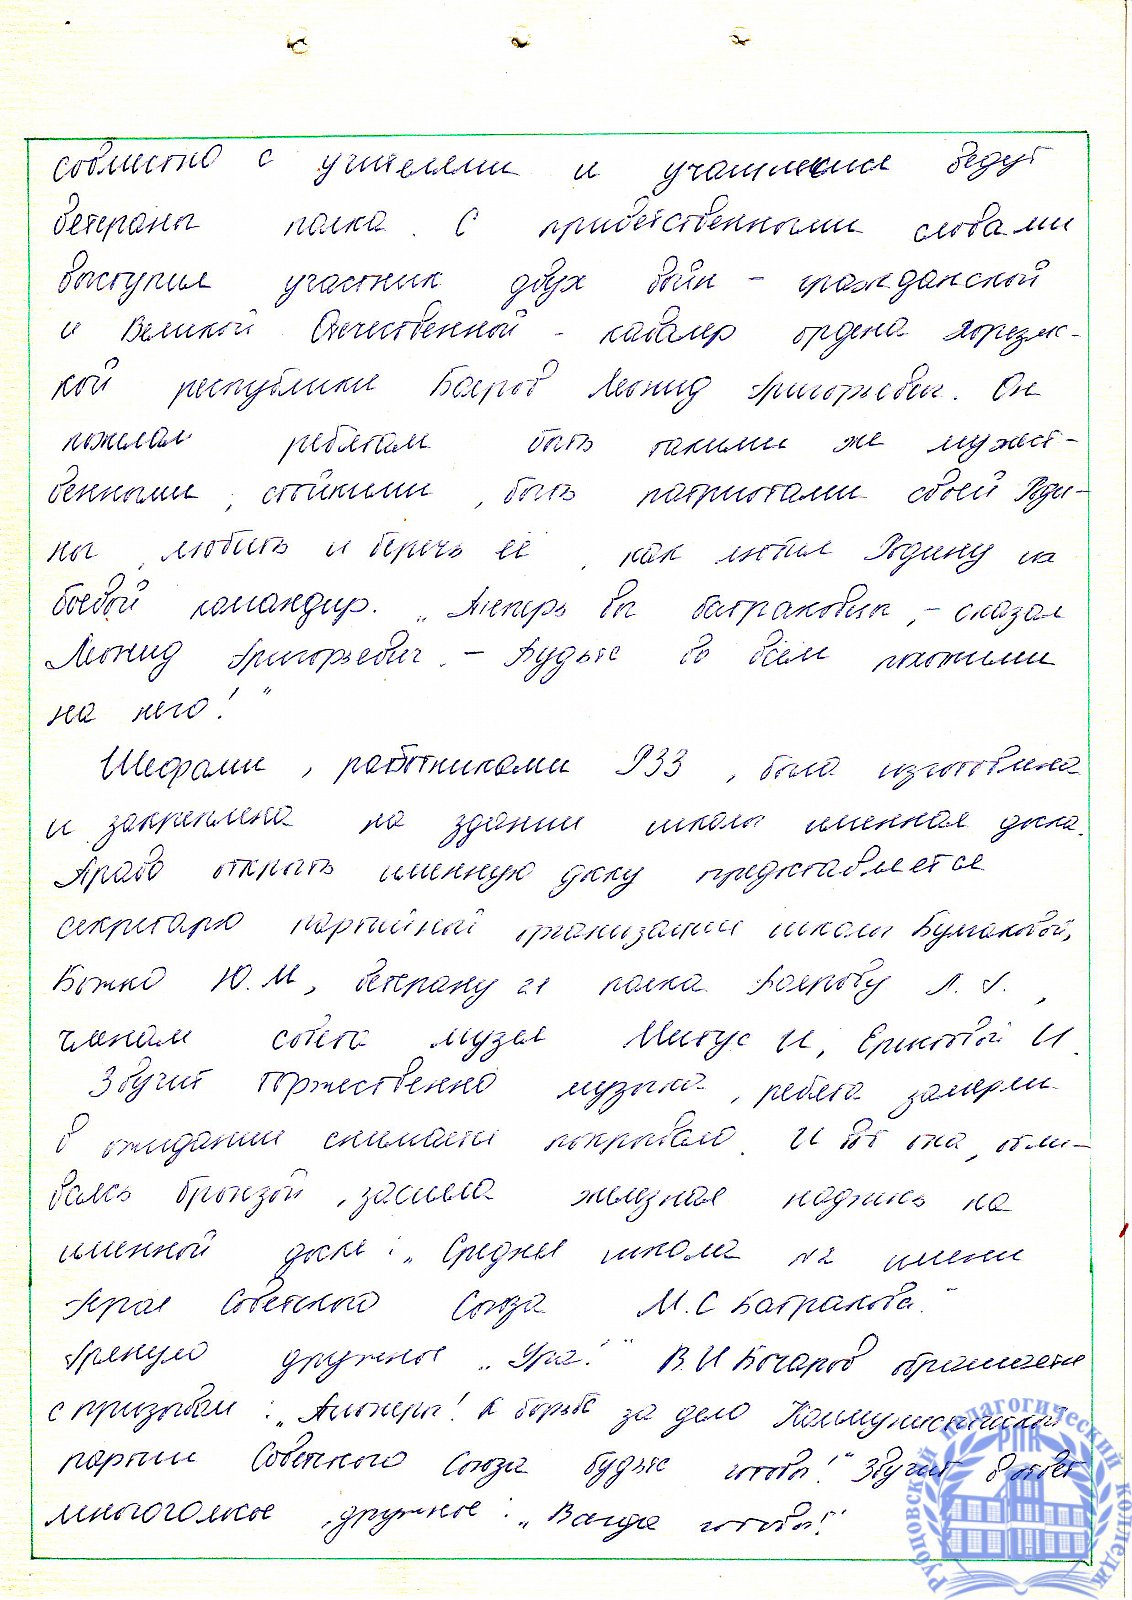 совместно с учителями и учащимися ведут
ветераны полка. С приветственными словами
выступил участник двух войн - гражданской
и Великой Отечественной - кавалер ордена Хорезмс-
кой республики Бояров Леонид Григорьевич. Он
пожелал ребятам быть такими же мужест-
венными, стойкими, быть патриотами своей Роди-
ны, любить и беречь её, как любил Родину их
боевой командир. „Теперь вы батраковцы, - сказал
Леонид Григорьевич. - Будьте во всём похожими
на него!"
Шефами, работниками РЗЗ, была изготовлена
и закреплена на здании школы именная доска.
Право открыть именную доску предоставляется
секретарю партийной организации школы
Божко Ю.М, ветерану 21 полка Боярову Л.Г.,
членам совета музея Митус И, Ершовой И.
Звучит торжественно музыка, ребята замерли
в ожидании снимается покрывало. И вот она, отли-
ваясь бронзой, засияла железная надпись на
именной доске: „Средняя школа №2 имени
Героя Советского Союза М.С Батракова."
Грянуло дружное „Ура!" В.И Бочаров обращается
с призывом: „Пионеры! К борьбе за дело Коммунистической
партии Советского Союза будьте готовы!" Звучит в ответ
многоголосое, дружное: „Всегда готовы!"
Рубцовский педагогический колледж
РПК